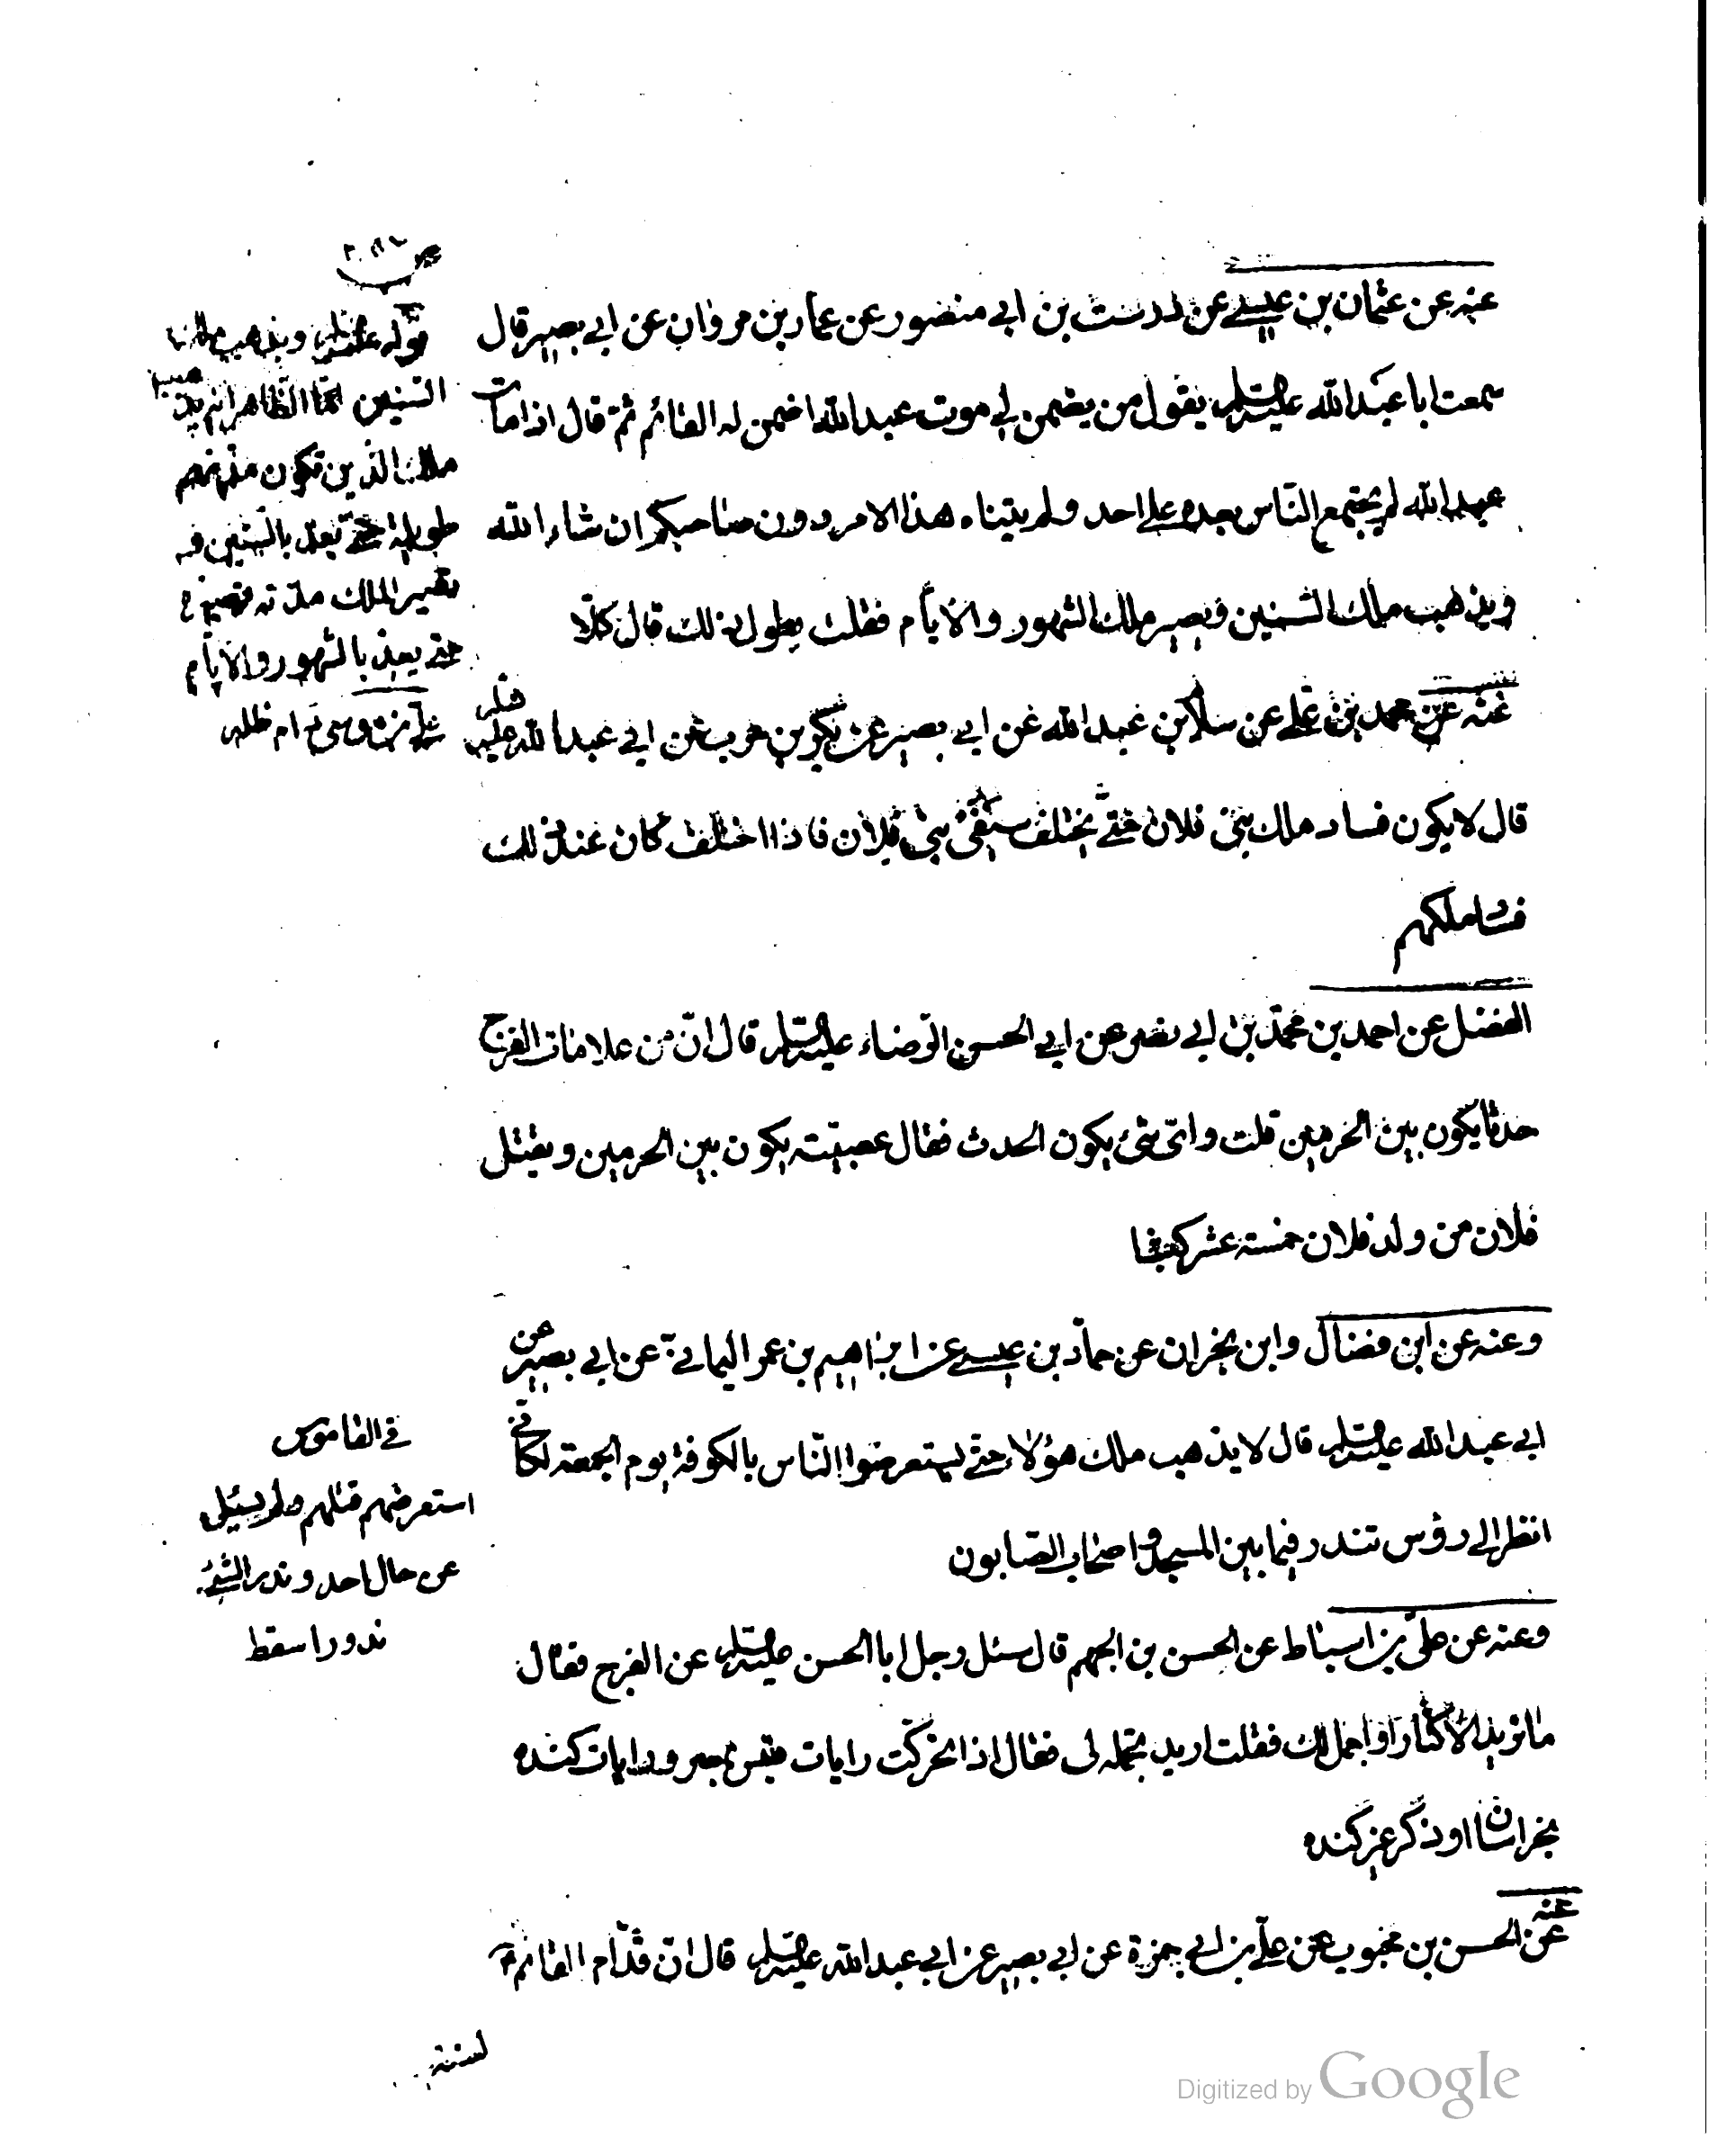 عنه عن عثمان بن عيسى عن درست بن ابي منصور عن عمار بن مروان عن ابي بصير قال
سمعت ابا عبد الله عليه السلم يقول من يضمن لي موت عبد الله اضمن له القائم ثم قال اذا مات
عبد الله لم يجتمع الناس بعده على احد ولم يتناه هذا الامر دون صاحبكم ان شاء الله
ويذهب ملك السنين ويصير ملك الشهور والايام فقلت يطول ذلك قال كلا
عنه عن محمد بن علي عن سلام بن عبد الله عن ابي بصير عن بكر بن حرب عن ابي عبد الله عليه السلم
قال لا يكون فساد ملك بني فلان حتى يختلف سيفى بني فلان فاذا اختلف كان عند ذلك
فساد ملكهم
الفضل عن احمد بن محمد بن ابي نصر عن ابي الحسن الرضاء عليه السلم قال ان من علامات الفرج
حدثا يكون بين الحرمين قلت واي شئ يكون الحدث فقال عصبيته يكون بين الحرمين ويقتل
فلان من ولد فلان خمسة عشر كبشا
وعنه عن ابن فضال وابن نجران عن حماد بن عيسى عن ابراهيم بن عمر اليماني عن ابي بصير عن
ابي عبد الله عليه السلم قال لا يذهب ملك هؤلاء حتى يستعرضوا الناس بالكوفة يوم الجمعة لكاني
انظر الى رؤس تندر فيما بين المسجد واصحاب الصابون
وعنه عن علي بن اسباط عن الحسن بن الجهم قال سئل رجل ابا الحسن عليه السلم عن الفرج فقال
ما تريد الاكثار او اجمل لك فقلت اريد تجمله لي فقال اذا تحركت رايات قيس بمصر ورايات كنده
بخراسان او ذكر غير كنده
عنه عن الحسن بن محبوب عن علي بن ابي حمزة عن ابي بصير عن ابي عبد الله عليه السلم قال ان قدام القائم
لسنة
قوله عليه السلم ويذهب ملك
السنين الظاهر انه
ملك الذين تكون مدتهم
طويلة حتى تعد بالسنين
يصير الملك مدته قصيرة
حتى يعد بالشهور والايام
دام ظله
في القاموس
استعرضهم قتلهم ولم يسئل
عن حال احد وندر الشئ
ندورا سقط
Digitized by Google